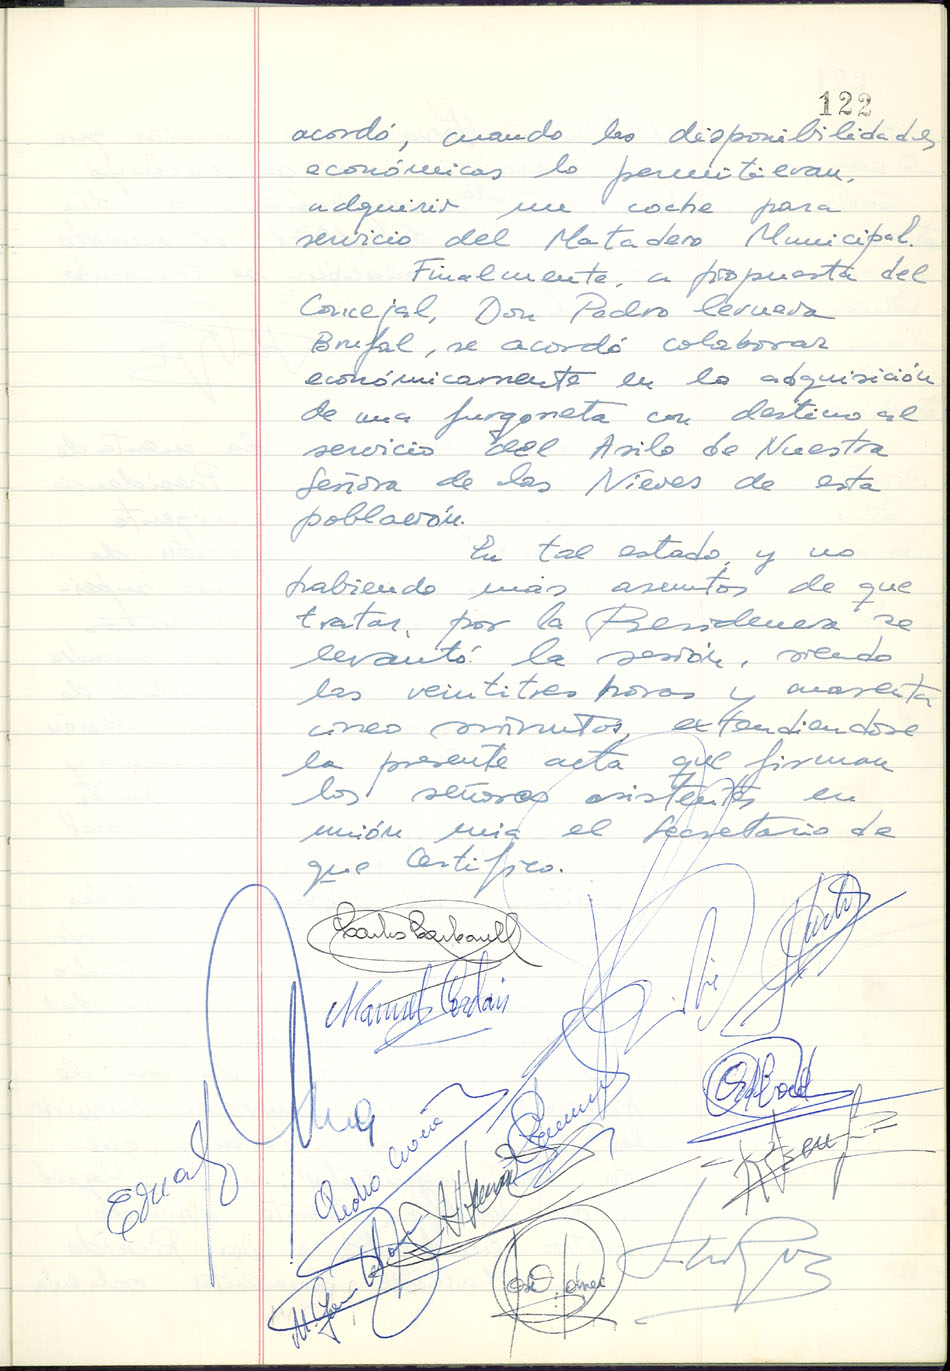 122
acordó, cuando las disponibilidades
económicas lo permitieran,
adquirir un coche para
servicio del Matadero Municipal.
Finalmente, a propuesta del
Concejal, Don Pedro
Brufal, se acordó colaborar
económicamente en la adquisición
de una furgoneta con destino al
servicio del Asilo de Nuestra
Señora de las Nieves de esta
población.
En tal estado, y no
habiendo más asuntos de que
tratar, por la Presidencia se
levantó la sesión, siendo
las veintitres horas y cuarenta
cinco minutos, extendiendose
la presente acta que firman
los señores asistentes, en
unión mia el Secretario de
que Certifico.
Manuel
Pedro